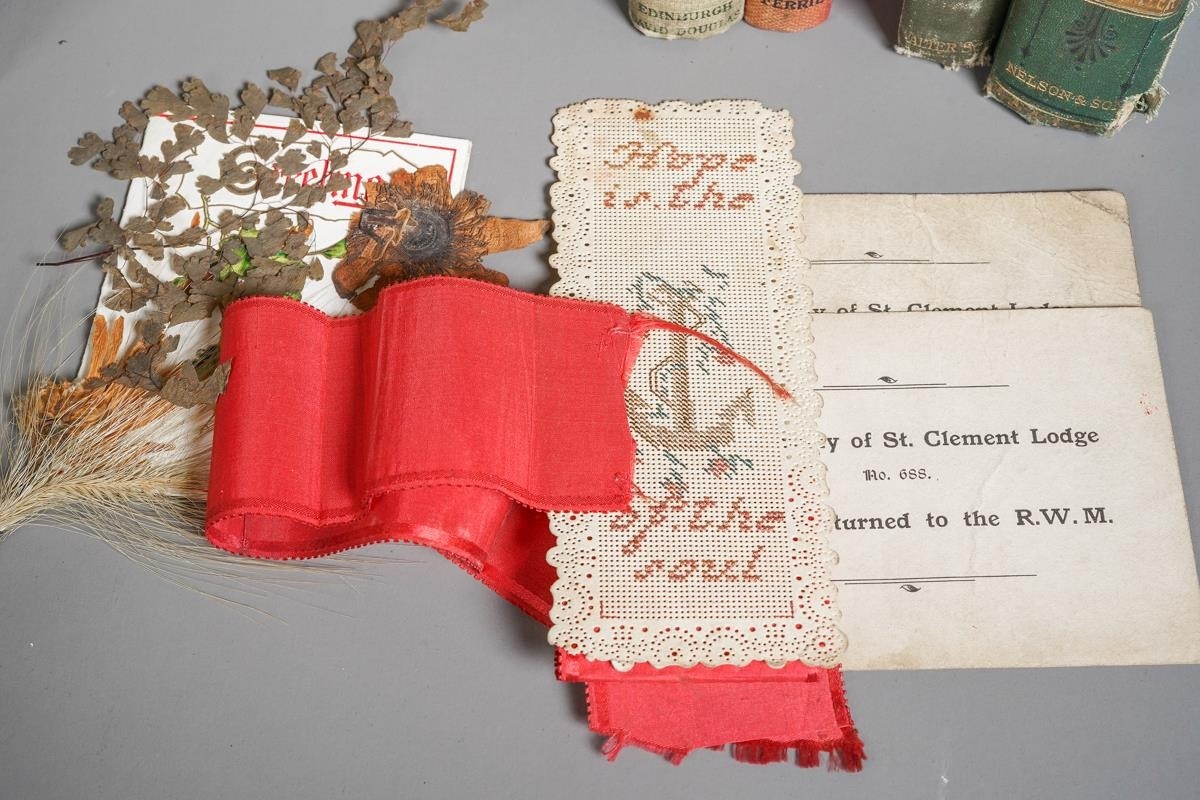 EDINBURGH
DAVID DOUGLAS
FERRIE
NELSON & SONS
Hope
is the
of the
soul
y of St. Clement Lodge
y of St. Clement Lodge
No. 688.
turned to the R.W.M.